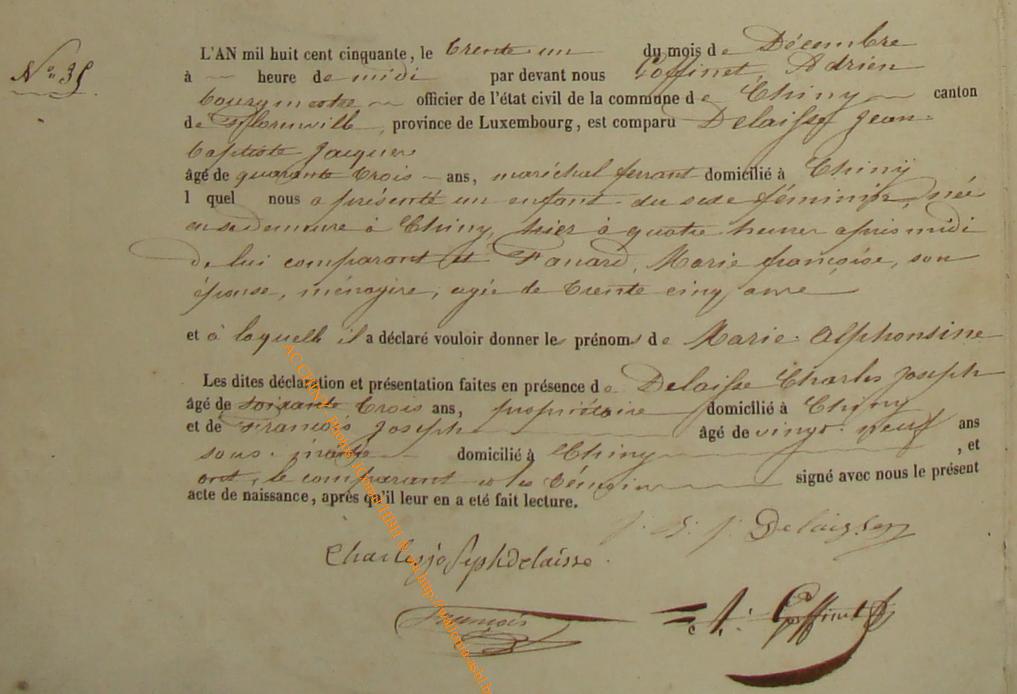 N° 35
L'AN mil huit cent cinquante, le trente-un du mois de Décembre
à heure de midi par devant nous Coffinet, Adrien
bourgmestre officier de l'état civil de la commune de Chiny canton
de Florenville, province de Luxembourg, est comparu Delaisse Jean-
baptiste Jacques
âgé de quarante trois ans, maréchal ferrant domicilié à Chiny
l quel nous a présenté un enfant du sexe féminin, née
en sa demeure à Chiny, hier à quatre heures après midi
de lui comparant et Fanard, Marie françoise, son
épouse, ménagère, agée de trente cinq ans
et à laquelle il a déclaré vouloir donner les prénoms de Marie Alphonsine
Les dites déclaration et présentation faites en présence de Delaisse Charles Joseph
âgé de soixante trois ans, propriétaire domicilié à Chiny
et de François Joseph âgé de vingt-neuf ans
domicilié à Chiny, et
ont, le comparant et les témoins signé avec nous le présent
acte de naissance, après qu'il leur en a eté fait lecture.
J. B. J. Delaisse
Charles joseph delaisse
François
A. Coffinet